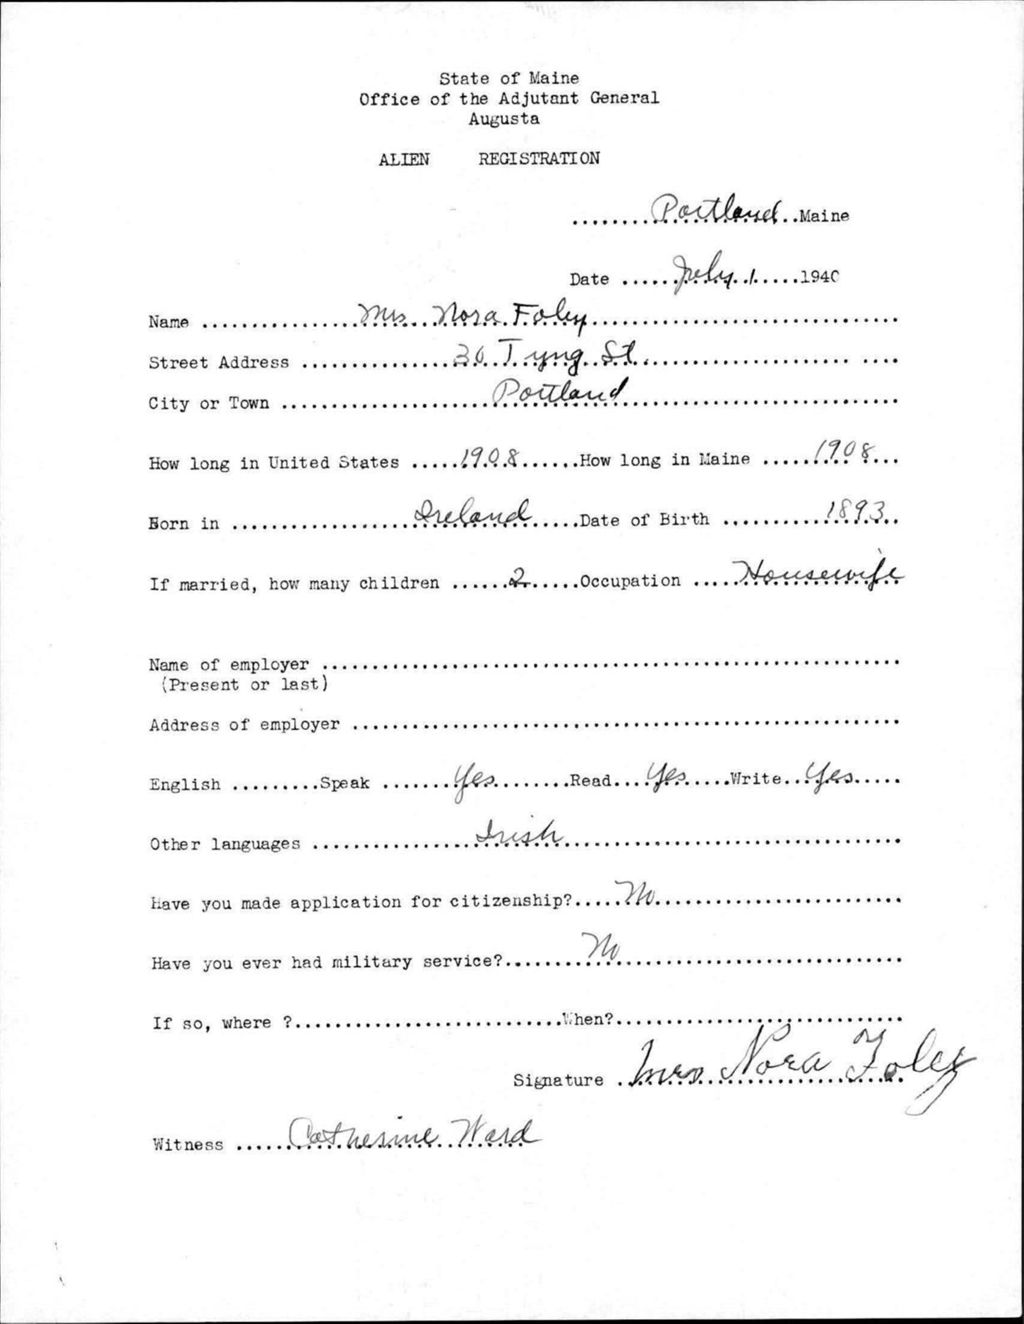 State of Maine
Office of the Adjutant General
Augusta
ALIEN REGISTRATION
........Portland..Maine
Date ......July 1.....1940
Name ................Mrs. Nora Foley................................
Street Address ................30 Tyng St......................... ....
City or Town ......................Portland............................
How long in United States .....1908......How long in Maine .....1908...
Born in ...................Ireland.....Date of Birth ...........1893..
If married, how many children ......2.....Occupation ....Housewife
Name of employer ..........................................................
(Present or last)
Address of employer .......................................................
English .........Speak .......Yes........Read....Yes.....Write..Yes.....
Other languages ................Irish..................................
Have you made application for citizenship?.....No.........................
Have you ever had military service?........No............................
If so, where ?...........................When?.............................
Signature .Mrs. Nora Foley
Witness .....Catherine Ward